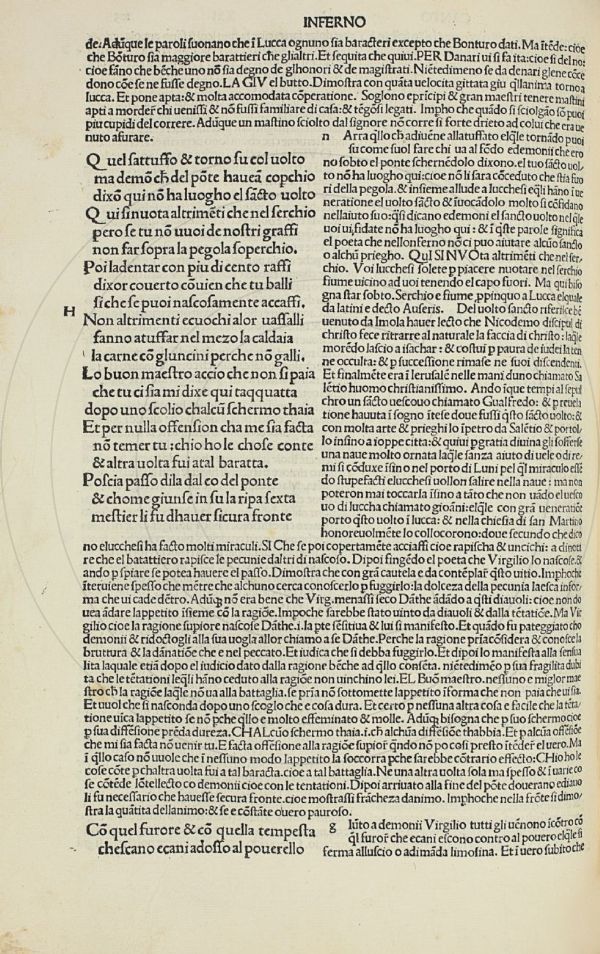 INFERNO
de. Adũque le paroli suonano che ĩ Lucca ognuno sia baracteri excepto che Bonturo dati. Ma ĩtẽde: cioe
che Bõturo sia maggiore barattieri che glialtri. Et seguita che quiui. PER Danari ui si fa ita: cioe si del no:
cioe fãno che bẽche uno nõ sia degno de glhonori & de magistrati. Niẽtedimeno se da denari gliene cõce
dono cõe se ne fusse degno. LA GIV el butto. Dimostra con quãta uelocita gittata giu qllanima torno a
lucca. Et pone apta: & molta accomodata cõperatione. Soglono e prĩcipi & gran maestri tenere mastini
apti a morder chi uenissi & nõ fussi familiare di casa: & tẽgõsi legati. Impho che quãdo si sciolgõ sõ
piu cupidi del correre. Adũque un mastino sciolto dal signore nõ corre si forte drieto ad colui che era ue
nuto afurare.
Quel sattuffo & torno su col uolto
ma demõ ch̃ del põte haueã copchio
dixõ qui nõ ha luogho el sãcto uolto
Qui si nuota altrimẽti che nel serchio
pero se tu nõ uuoi de nostri graffi
non far sopra la pegola soperchio.
Poi ladentar con piu di cento raffi
dixor couerto cõuien che tu balli
si che se puoi nascosamente accaffi.
H
Non altrimenti ecuochi alor uassalli
fanno atuffar nel mezo la caldaia
la carne cõ gluncini perche nõ galli.
Lo buon maestro accio che non si paia
che tu ci sia mi dixe qui taqquatta
dopo uno scolio chalcũ schermo thaia
Et per nulla offension cha me sia facta
nõ temer tu: chio ho le chose conte
& altra uolta fui atal baratta.
Poscia passo dila dal co del ponte
& chome giunse in su la ripa sexta
mestier li fu dhauer sicura fronte
n Arra qllo ch̃ adiuẽne allatuffato elqle tornãdo puoi
su come suol fare chi ua al fõdo edemonii che ero
no sobto el ponte schernẽdolo dixono. el tuo sãcto uol
to nõ ha luogho qui: cioe nõ li sara cõceduto che stia fuo
ri della pegola. & insieme allude a lucchesi eqli hãno ĩ ue
neratione el uolto sãcto & ĩuocãdolo molto si cõfidano
nellaiuto suo: qsi dicano edemoni el sancto uolto nel qle
uoi ui fidate nõ ha luogho qui: & ĩ qste parole significa
el poeta che nellonferno nõ ci puo aiutare alcũo sancto
o alchũ priegho. QuI SI NVOta altrimẽti che nel ser
chio. Voi lucchesi solete p piacere nuotare nel serchio
fiume uicino ad uoi tenendo el capo fuori. Ma qui biso
gna star sobto. Serchio e fiume ppinquo a Lucca elquale
da latini e decto Auseris. Del uolto sancto riferisce bẽ
uenuto da Imola hauer lecto che Nicodemo discipul di
christo fece ritrarre al naturale la faccia di christo: laqle
morẽdo lascio a isachar: & costui p paura de iudei la ten
ne occulta: & p successione rimale ne suoi discendenti.
Et finalmẽte era ĩ Ierusalẽ nelle mani duno chiamato Si
lẽtio huomo christianissimo. Ando ĩque tempi al sepul
chro un sãcto uescouo chiamato Gualfredo: & p reuela
tione hauuta ĩ sogno ĩtese doue fussi qsto sãcto uolto: &
con molta arte & prieghi lo ĩpetro da Salẽtio & portol
lo insino a ioppe citta: & quiui p gratia diuina gli sofferse
una naue molto ornata laqle sanza aiuto di uele o di re
mi si cõduxe ĩsino nel porto di Luni pel ql miraculo essẽ
do stupefacti elucchesi uollon salire nella naue: ma non
poteron mai toccarla ĩsino a tãto che non uãdo el uesco
uo di luccha chiamato gioãni: elqle con grã ueneratiõe
porto qsto uolto ĩ lucca: & nella chiesia di san Martino
honoreuolmẽte lo collocorono: doue secundo che dico
no elucchesi ha facto molti miraculi. SI Che se poi copertamẽte acciaffi cioe rapisca & uncichi: a dinota
re che el batattiero rapisce le pecunie daltri di nascoso. Dipoi fingẽdo el poeta che Virgilio lo nascose &
ando p spiare se potea hauere el passo. Dimostra che con grã cautela e da contẽplar qsto uitio. Imphoche
ĩteruiene spesso che mẽtre che alchuno cerca conoscerlo p fuggirlo: la dolceza della pecunia lasca infor
ma che ui cade dẽtro. Adũq nõ era bene che Virg. menassi seco Dãte adãdo a qsti diauoli: cioe non do
uea ãdare lappetito ĩsieme cõ la ragiõe. Impoche sarebbe stato uinto da diauoli & dalla tẽtatiõe. Ma Vir
gilio cioe la ragione supiore nascose Dãthe. i. la pte sẽsitiua & lui si manifesto. Et quãdo fu pateggiato cho
demonii & ridoctogli alla sua uogla allor chiamo a se Dãthe. Perche la ragione priacõsidera & conosce la
bruttura & la dãnatiõe che e nel peccato. Et iudica che si debba fuggirlo. Et dipoi lo manifesta alla sensua
lita laquale etiã dopo el iudicio dato dalla ragione bẽche ad qllo cõsẽta. niẽtedimẽo p sua fragilita dubi
ta che le tẽtationi leqli hãno ceduto alla ragiõe non uinchino lei. EL Buõ maestro. nessuno e miglor mae
stro ch̃ la ragiõe laqle nõ ua alla battaglia. se priã nõ sottomette lappetito ĩ forma che non paia che ui sia.
Et uuol che si nasconda dopo uno scoglo che e cosa dura. Et certo p nessuna altra cosa e facile che la tẽta
tione uica lappetito se nõ pche qllo e molto effeminato & molle. Adũq bisogna che p suo schermo cioe
p sua diffesiõe prẽda dureza. CHALcũo schermo thaia. i. ch̃ alchũa diffesiõe thabbia. Et p alcũa offesiõe
che mi sia facta nõ uenir tu. E facta offesiõe alla ragiõe supior qñdo nõ po cosi presto ĩtẽder el uero. Ma
ĩ qllo caso nõ uuole che ĩ nessuno modo lappetito la soccorra pche sarebbe cõtrario effecto: CHio ho le
cose cõte p chaltra uolta fui a tal baracta. cioe a tal battaglia. Ne una altra uolta sola ma spesso & ĩ uarie co
se cõtẽde lõtellecto co demonii cioe con le tentationi. Dipoi arriuato alla fine del põte douerano ediauo
li fu necessario che hauesse secura fronte. cioe mostrassi frãcheza danimo. Imphoche nella frõte si dimo
stra la quãtita dellanimo: & se e cõstãte o uero pauroso.
Cõ quel furore & cõ quella tempesta
che scano ecani adosso al pouerello
g Iũto a demonii Virgilio tutti gli uẽnono ĩcõtro cõ
ql furor che ecani escono contro al pouero elqle si
ferma alluscio o adimãda limosina. Et ĩ uero subito che